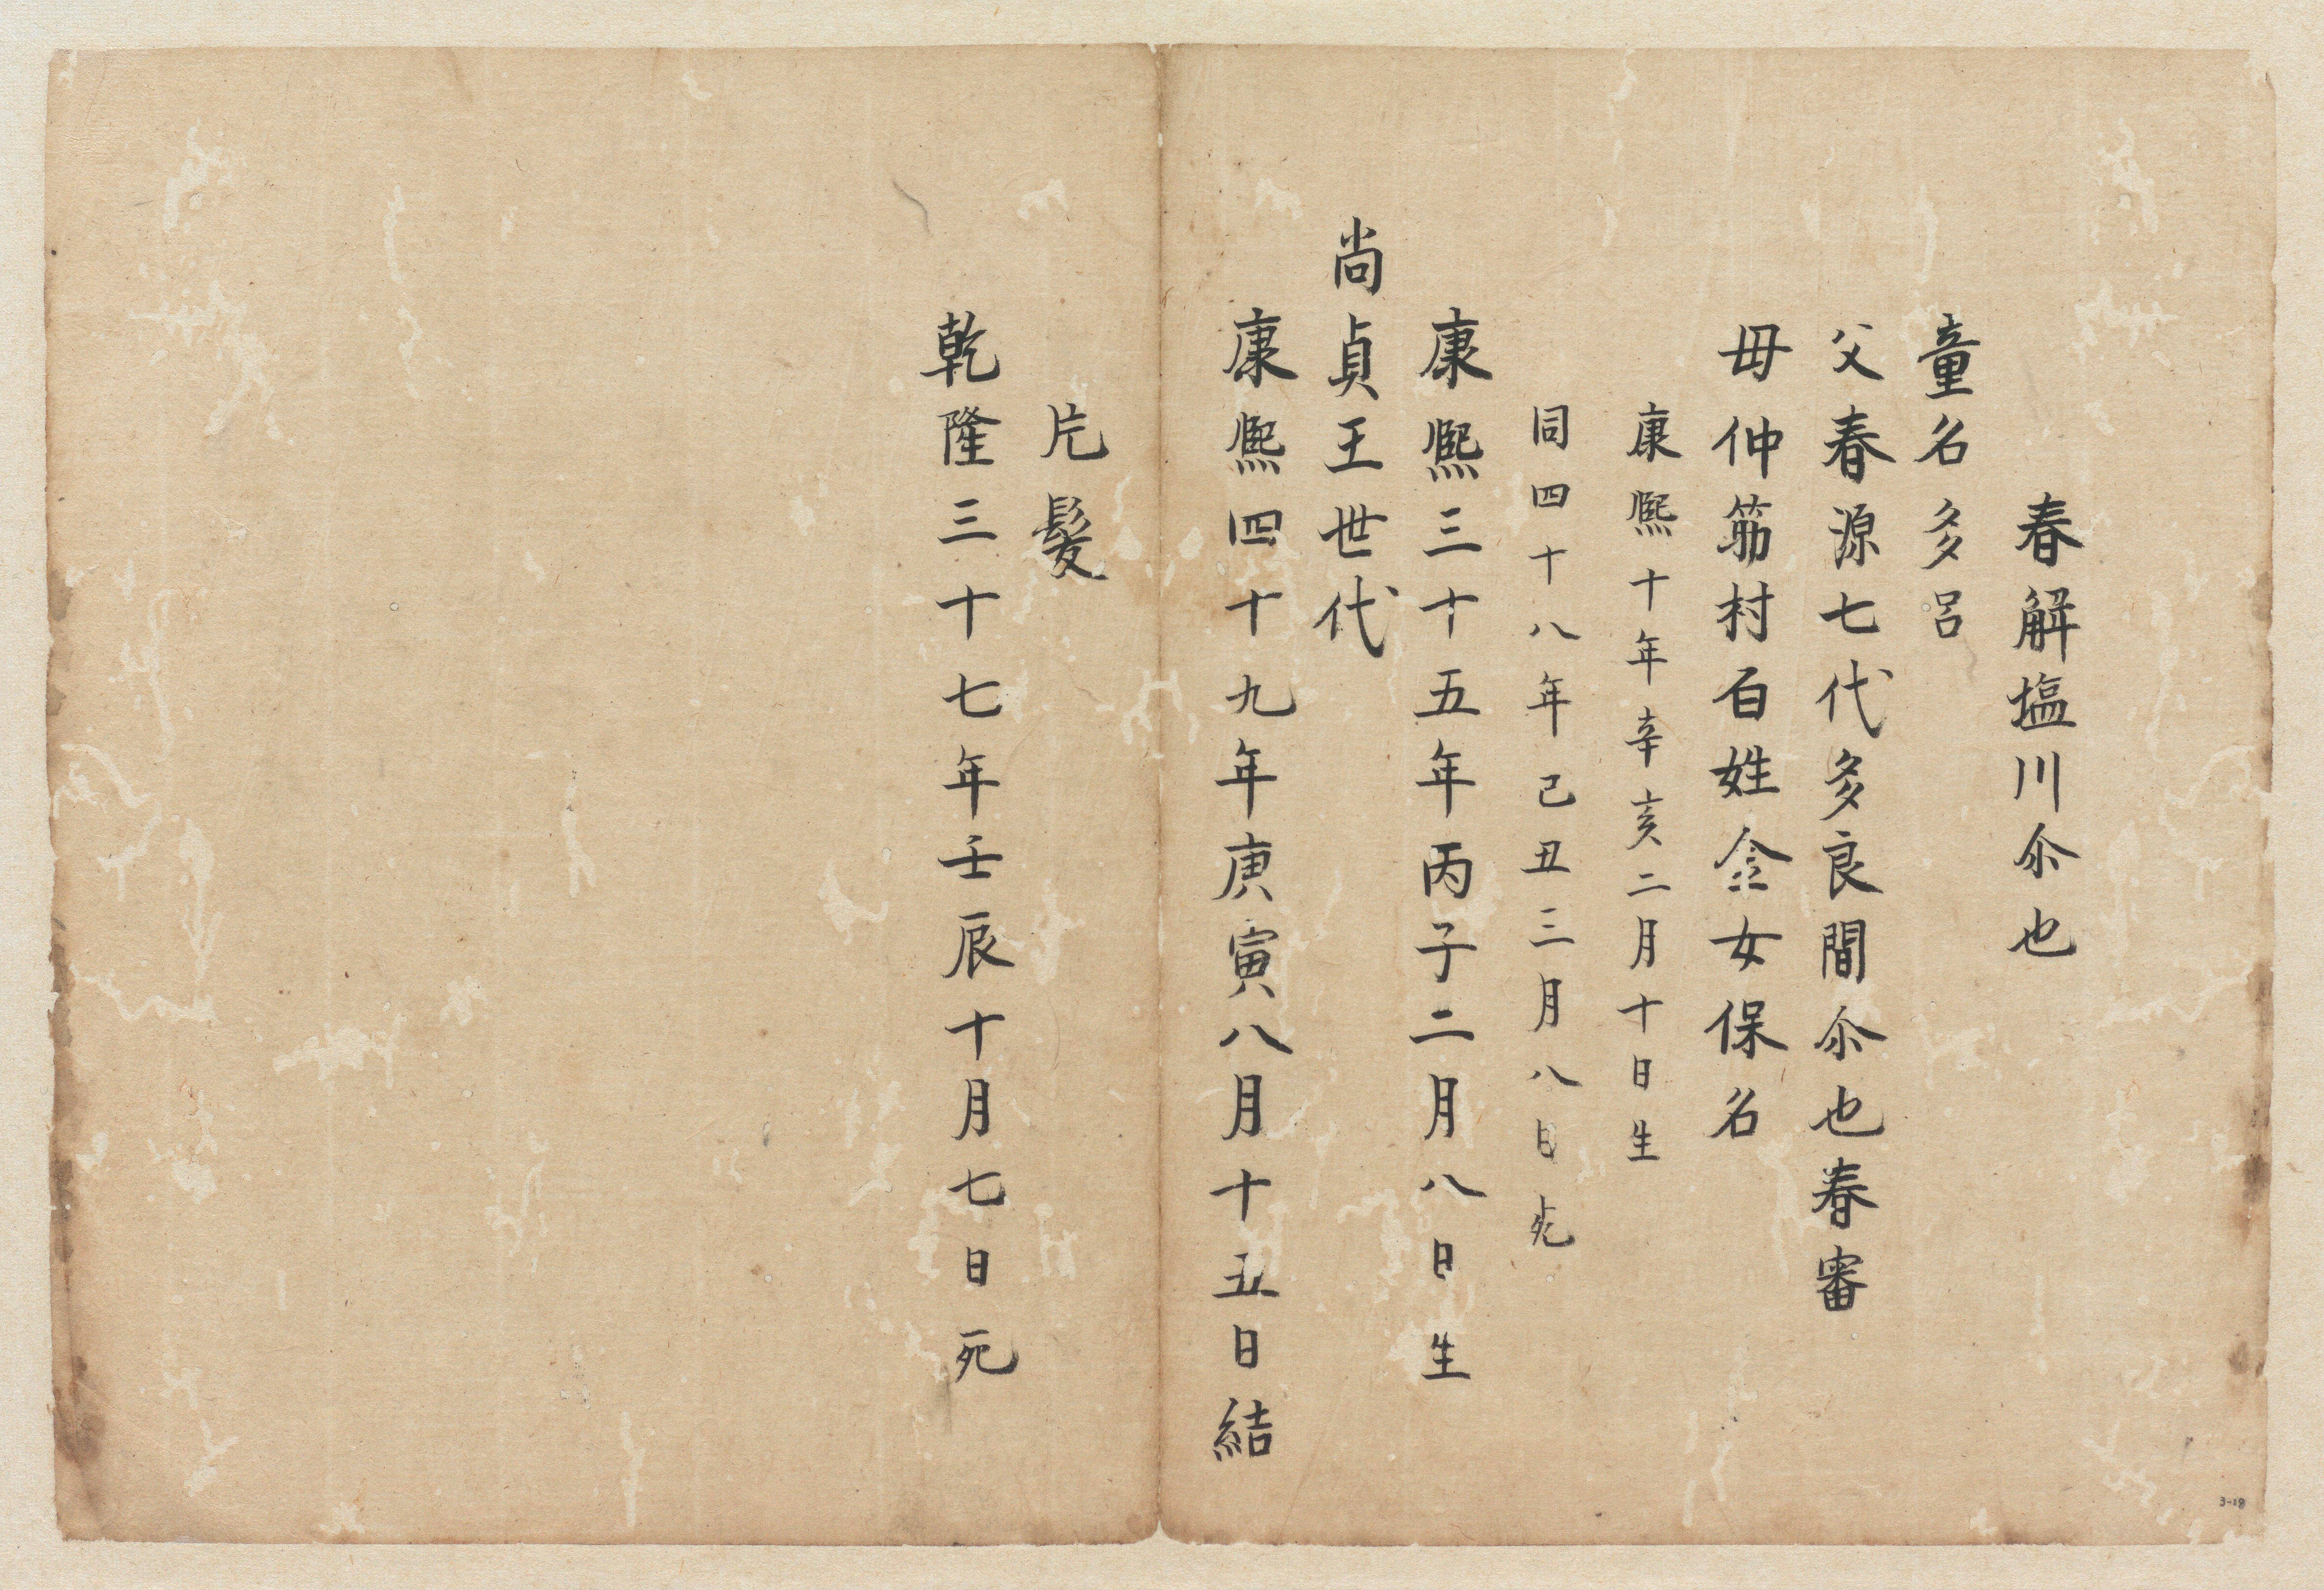 春解塩川尓也
童名多呂
父春源七代多良間尓也春審
母仲筋村百姓金女保名
康熈十年辛亥二月十日生
同四十八年己丑三月八日死
康熈三十五年丙子二月八日生
尚貞王世代
康熈四十九年庚寅八月十五日結
片髪
乾隆三十七年壬辰十月七日死
3-18